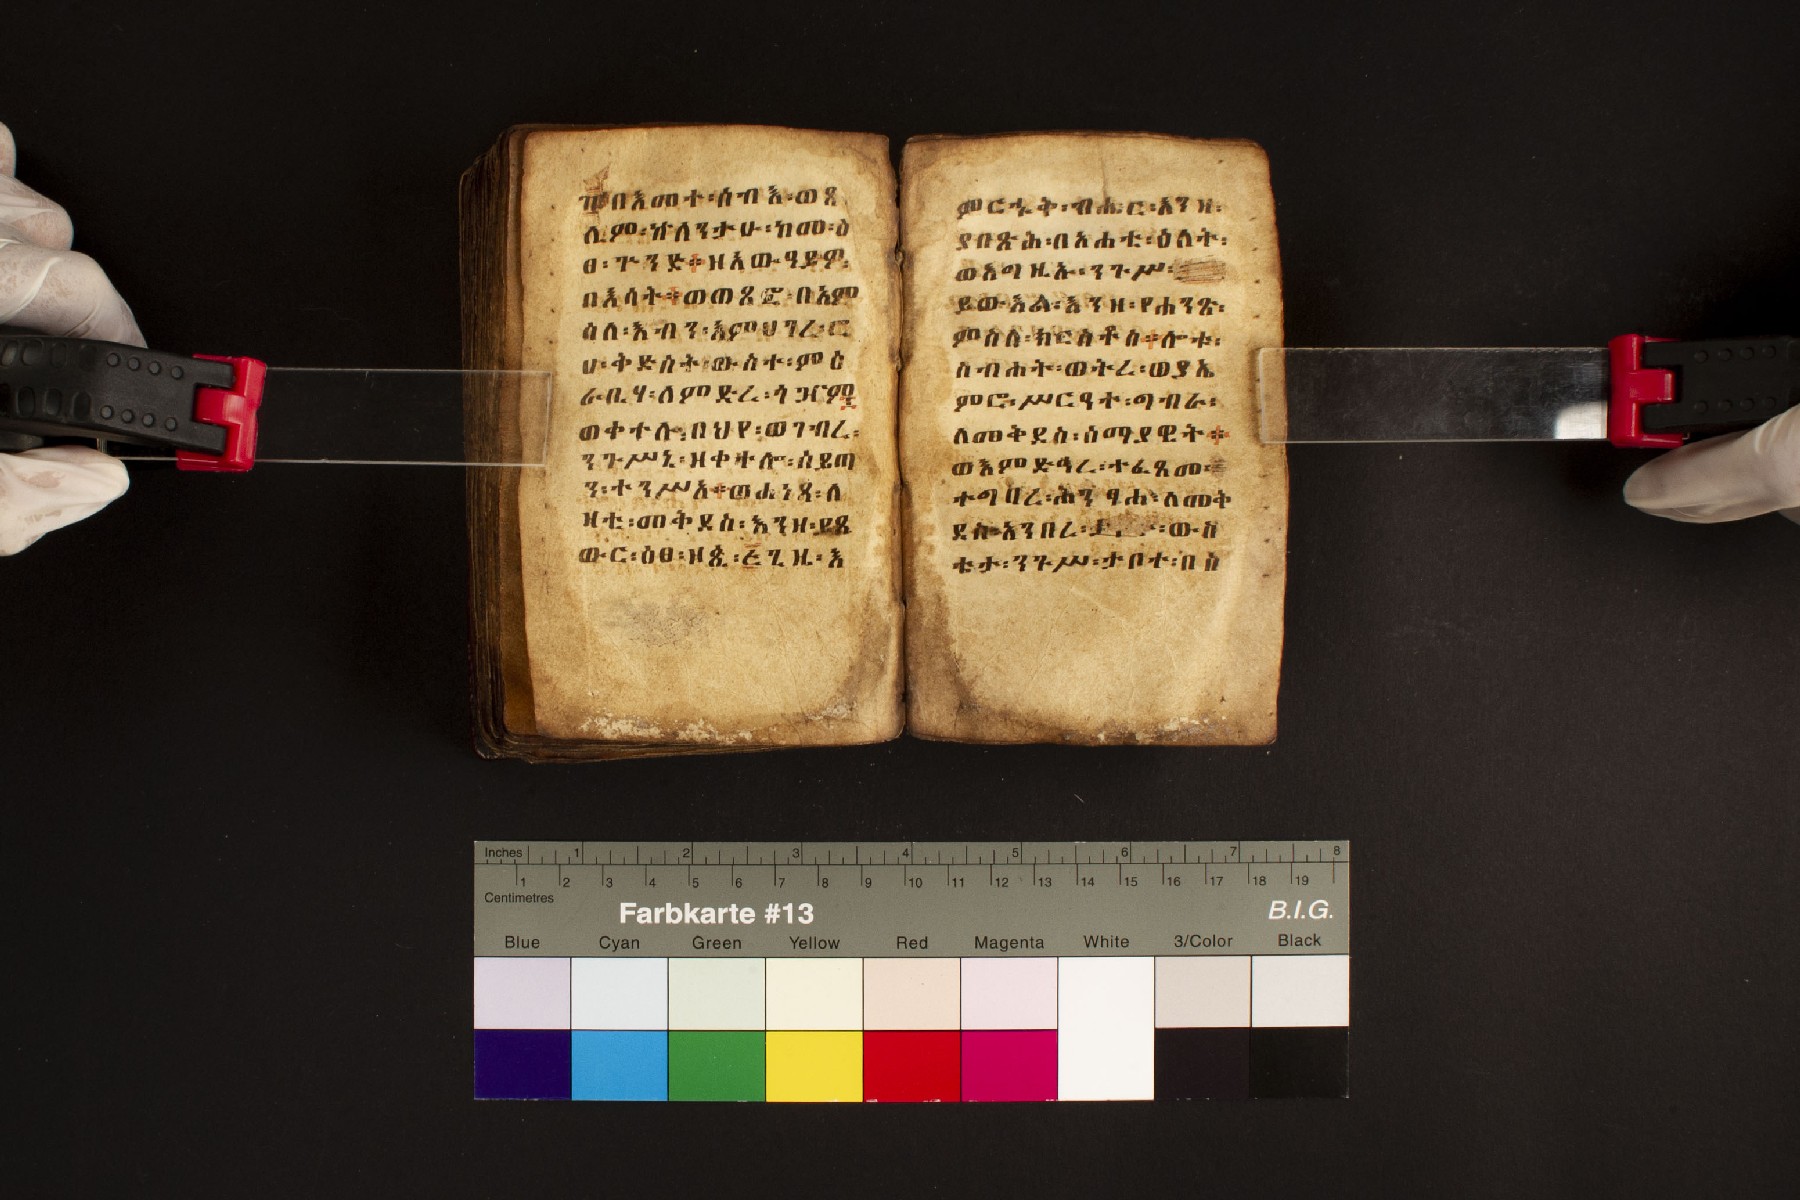 በእመተ፡ሰብእ፡ወጸ
ሊም፡ኵለንታሁ፡ከመ፡ዕ
ፀ፡ጕንድ፡ዘእው ዓይዎ፡
በእሳት፡
ዕለ፡እብን፡
ሁ፡ቅድስት፡ውስተ፡ምዕ
ራቢሃ፡ለምድረ፡
ወቀተሉ፡በህየ፡ወገብረ፡
ንጉሥኒ፡ዘቀተሎ፡ሰይጣ
ን፡ተንሥአ፡ወሐነጸ፡ለ
ዛቲ፡መቅደስ፡እንዘ፡ይጼ
ውር፡ዕፀ፡
ብሔር፡እንዘ፡
ያበጽሕ፡በአሐቲ፡ዕለት፡
ወእግዚኡ፡ንጉሥ፡
ይውእል፡እንዘ፡የሐንጽ፡
ምስለ፡ክርስቶስ፡ሎቱ፡
ስብሐት፡ወትረ፡ወያኤ
ምሮ፡ሥርዓተ፡ግብራ፡
ለመቅደስ፡ሰማያዊት፡
ወእምድኅረ፡ተፈጸመ፡
ተግበረ፡ሕንፃሐ፡ለመቅ
ደስ፡አንበረ፡ ውስ
ቴታ፡ንጉሥ፡ታቦተ፡በስ
Inches 1 2 3 4 5 6 7 8
1 2 3 4 5 6 7 8 9 10 11 12 13 14 15 16 17 18 19
Centimetres
Farbkarte #13 B.I.G.
Blue Cyan Green Yellow Red Magenta White 3/Color Black